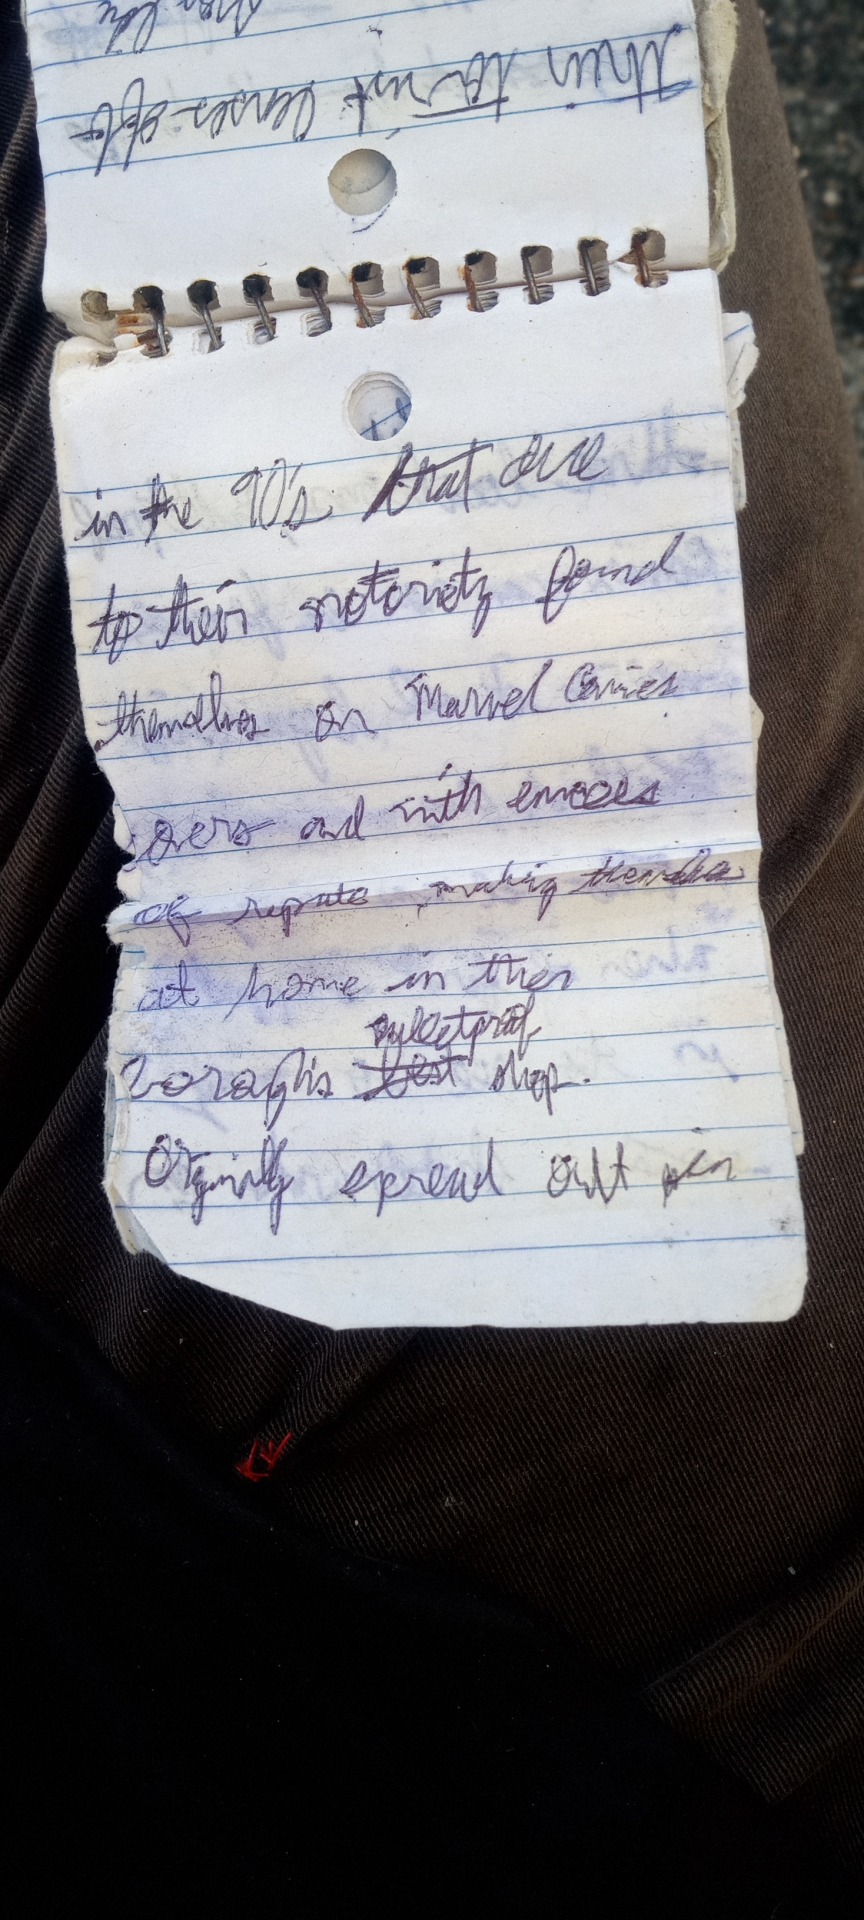 their tourist lenses. Of-
in the 90's that due
to their notoriety found
themselves on Marvel Comics
covers and with emcees
of repute, making themselves
at home in this
borough's bulletproof shop.
Orginally spread out